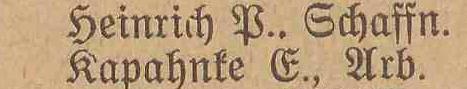 Heinrich P.. Schaffn.
Kapahnke E., Arb.